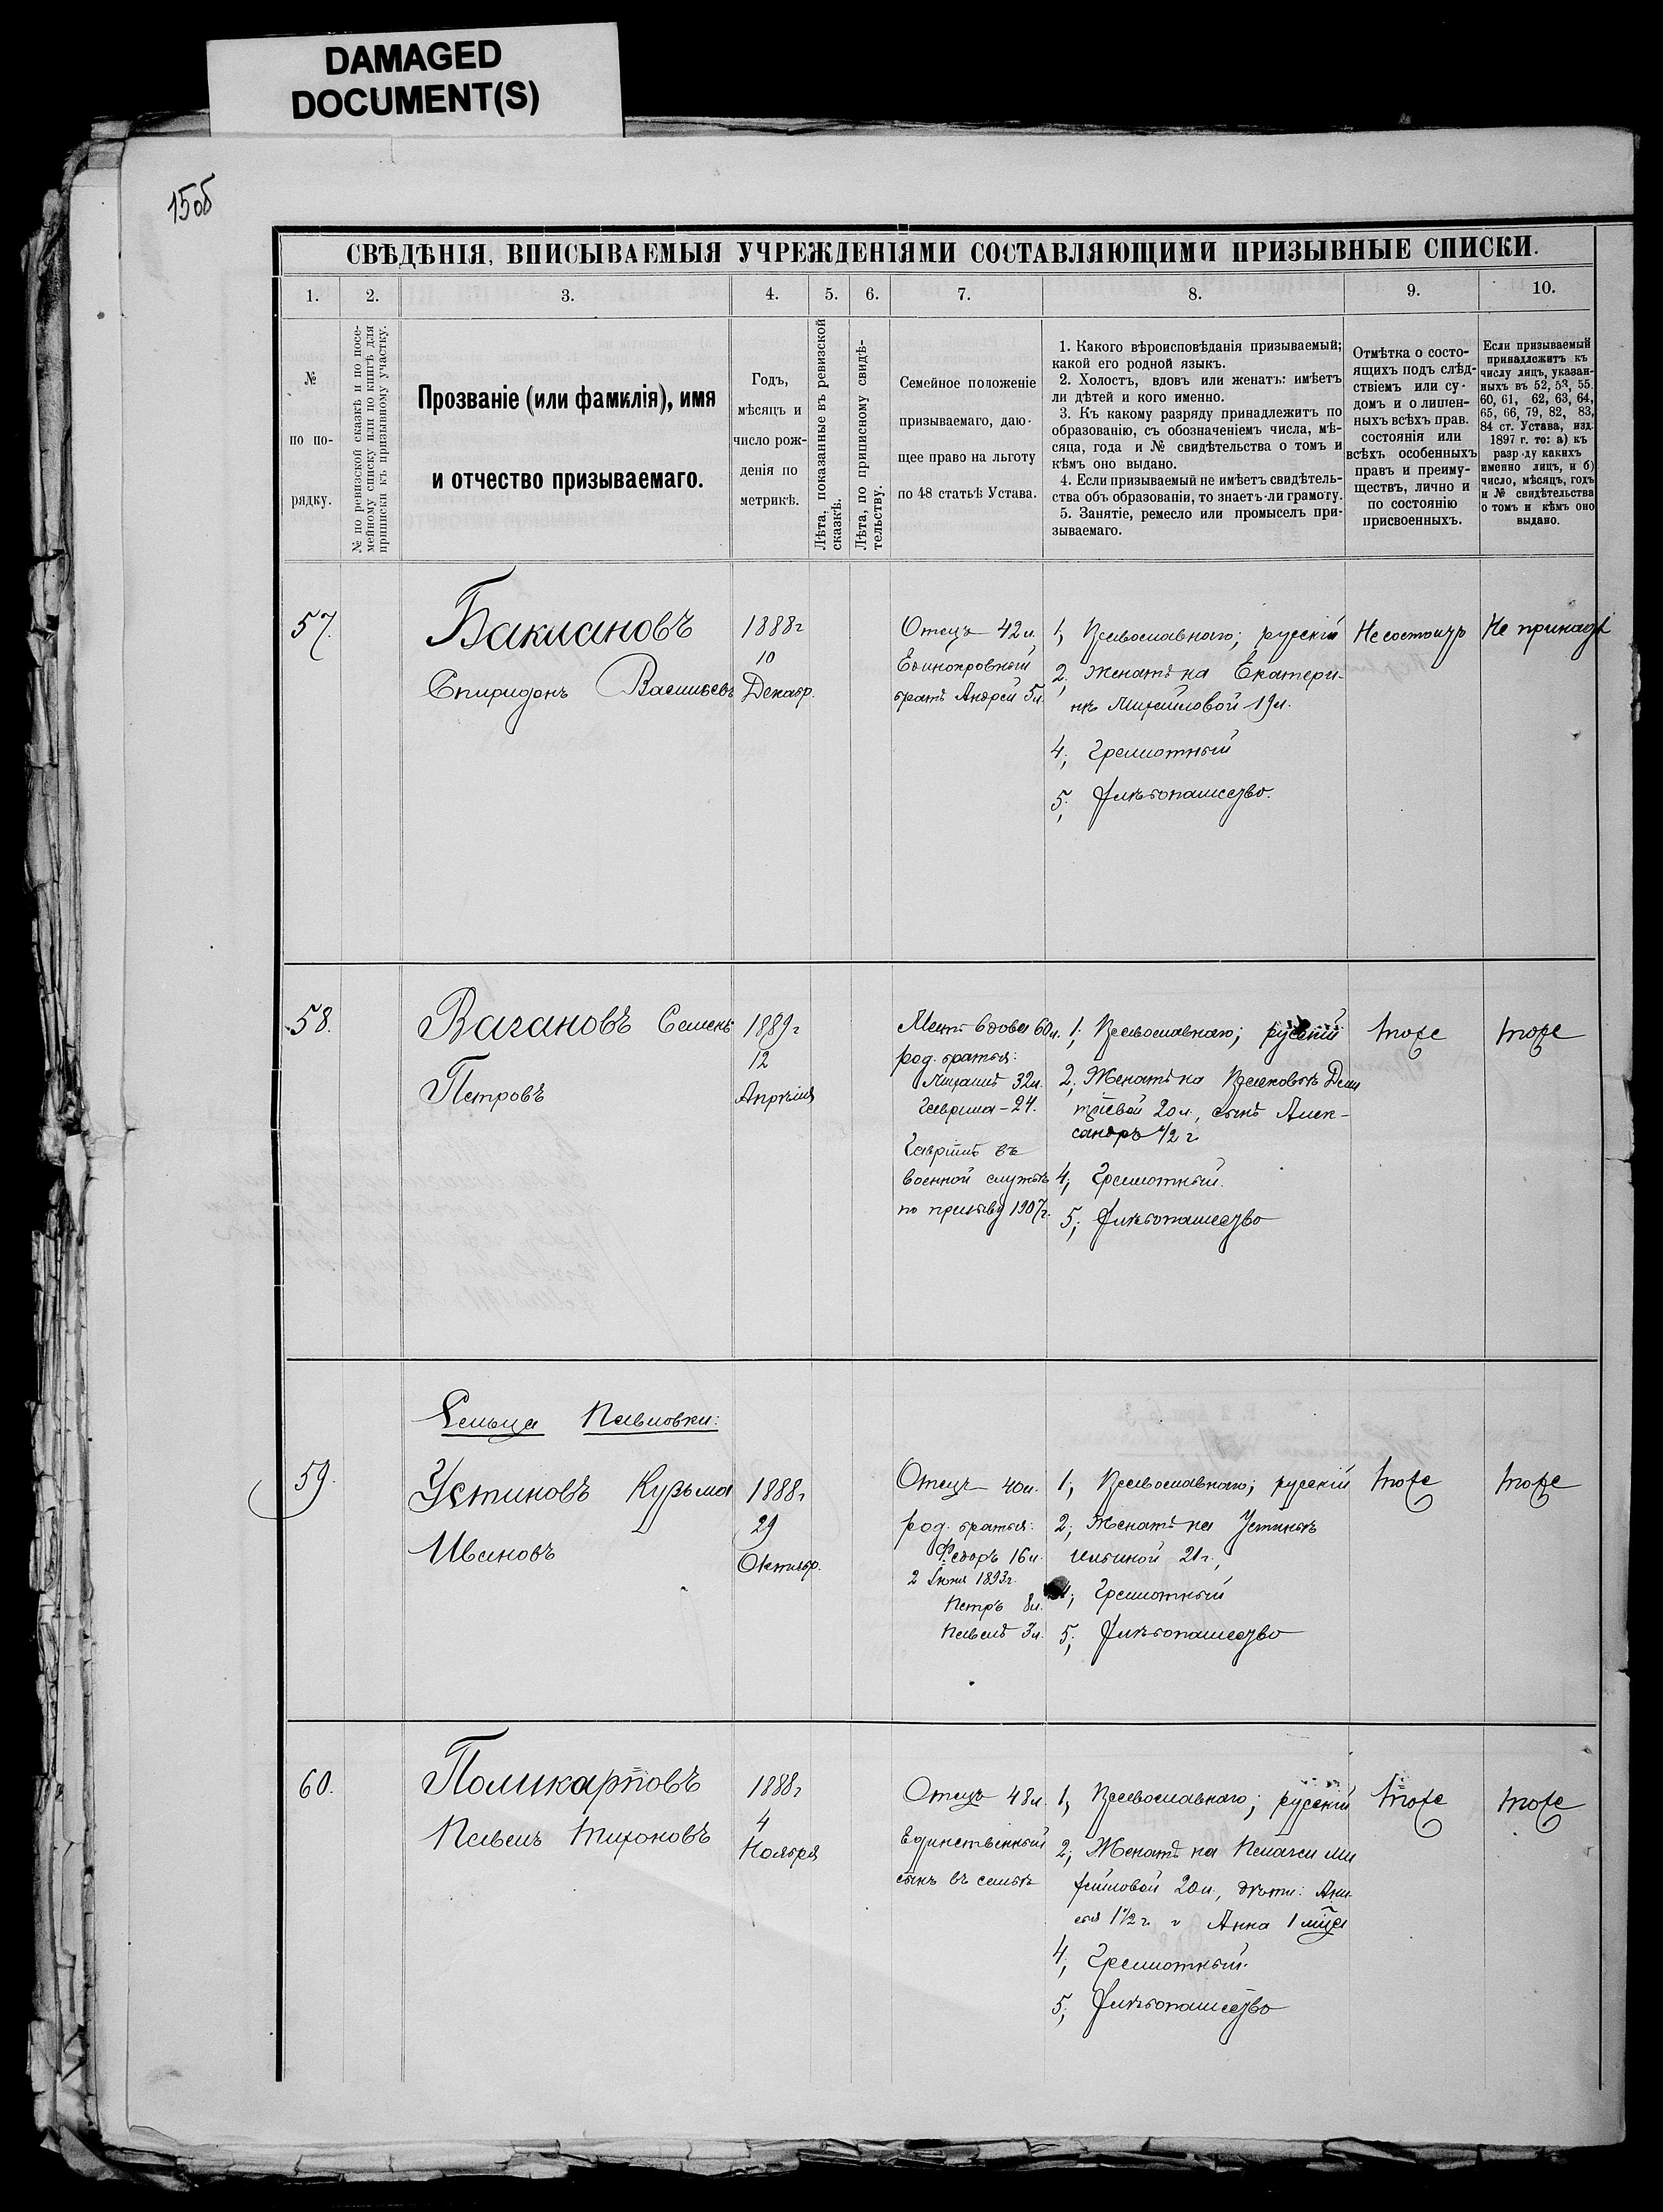 DAMAGED
DOCUMENT(S)
15об
СВѢДѢНІЯ, ВПИСЫВАЕМЫЯ УЧРЕЖДЕНІЯМИ СОСТАВЛЯЮЩИМИ ПРИЗЫВНЫЕ СПИСКИ.
1. 2. 3. 4. 5. 6. 7. 8. 9. 10.
№
по по-
рядку.
№ по ревизской сказкѣ и по посе-
мейному списку или по книгѣ для
приписки къ призывному участку.
Прозваніе (или фамилія), имя
и отчество призываемаго.
Годъ,
мѣсяцъ и
число рож-
денія по
метрикѣ.
Лѣта, показанные въ ревизской
сказкѣ.
Лѣта, по приписному свидѣ-
тельству.
Семейное положеніе
призываемаго, даю-
щее право на льготу
по 48 статьѣ Устава.
1. Какого вѣроисповѣданія призываемый;
какой его родной языкъ.
2. Холостъ, вдовъ или женатъ: имѣетъ
ли дѣтей и кого именно.
3. Къ какому разряду принадлежитъ по
образованію, съ обозначеніемъ числа, мѣ-
сяца, года и № свидѣтельства о томъ и
кѣмъ оно выдано.
4. Если призываемый не имѣетъ свидѣтель-
ства объ образованіи, то знаетъ-ли грамоту.
5. Занятіе, ремесло или промыселъ при-
зываемаго.
Отмѣтка о состо-
ящихъ подъ слѣд-
ствіемъ или су-
домъ и о лишен-
ныхъ всѣхъ прав.
состоянія или
всѣхъ особенныхъ
правъ и преиму-
ществъ, лично и
по состоянію
присвоенныхъ.
Если призываемый
принадлежитъ къ
числу лицъ, указан-
ныхъ въ 52, 53, 55.
60, 61, 62, 63, 64,
65, 66, 79, 82, 83,
84 ст. Устава, изд.
1897 г. то: а) къ
разр ду какихъ
именно лицъ, и б)
число, мѣсяцъ, годъ
и № свидѣтельства
о томъ и кѣмъ оно
выдано.
57.
Баклановъ
Спиридонъ Васильевъ
1888г
10
Декабр.
Отецъ 42л.
Единокровный
братъ Андрей 5л.
1, Православнаго; русскій
2. Женатъ на Екатери-
нѣ Михайловой 19л.
4; Грамотный
5; Хлѣбопашество.
Не состоитъ
Не принадл
58.
Вагановъ Семенъ
Петровъ
1889г
12
Апрѣля
Мать вдова 60л.
род. братья:
Михаилъ 32л.
Гаврила - 24.
Гавріилъ въ
военной службѣ
по призыву 1907г.
1; Православнаго; русскій
2; Женатъ на Прасковьѣ Дми
тріевой 20л., сынъ Алек-
сандръ 1/2 г.
4; Грамотный.
5; Хлѣбопашество
тоже
тоже
Сельца Павловки:
59.
Устиновъ Кузьма
Ивановъ
1888г
29
Октябр.
Отецъ 40л.
род. братья:
Федоръ 16л.
2 Іюня 1893г.
Петръ 8л.
Павелъ 3л.
1; Православнаго; русскій
2; Женатъ на Устиньѣ
Ильиной 21г.
4; Грамотный
5; Хлѣбопашество
тоже
тоже
60.
Поликарповъ
Павелъ Тихоновъ
1888г
4
Ноября
Отецъ 48л.
единственный
сынъ въ семьѣ
1, Православнаго; русскій
2; Женатъ на Пелагеи Ми
хайловой 20л., дѣти: Ани
сья 1 1/2 г. и Анна 1 мѣца
4; Грамотный.
5; Хлѣбопашество
тоже
тоже